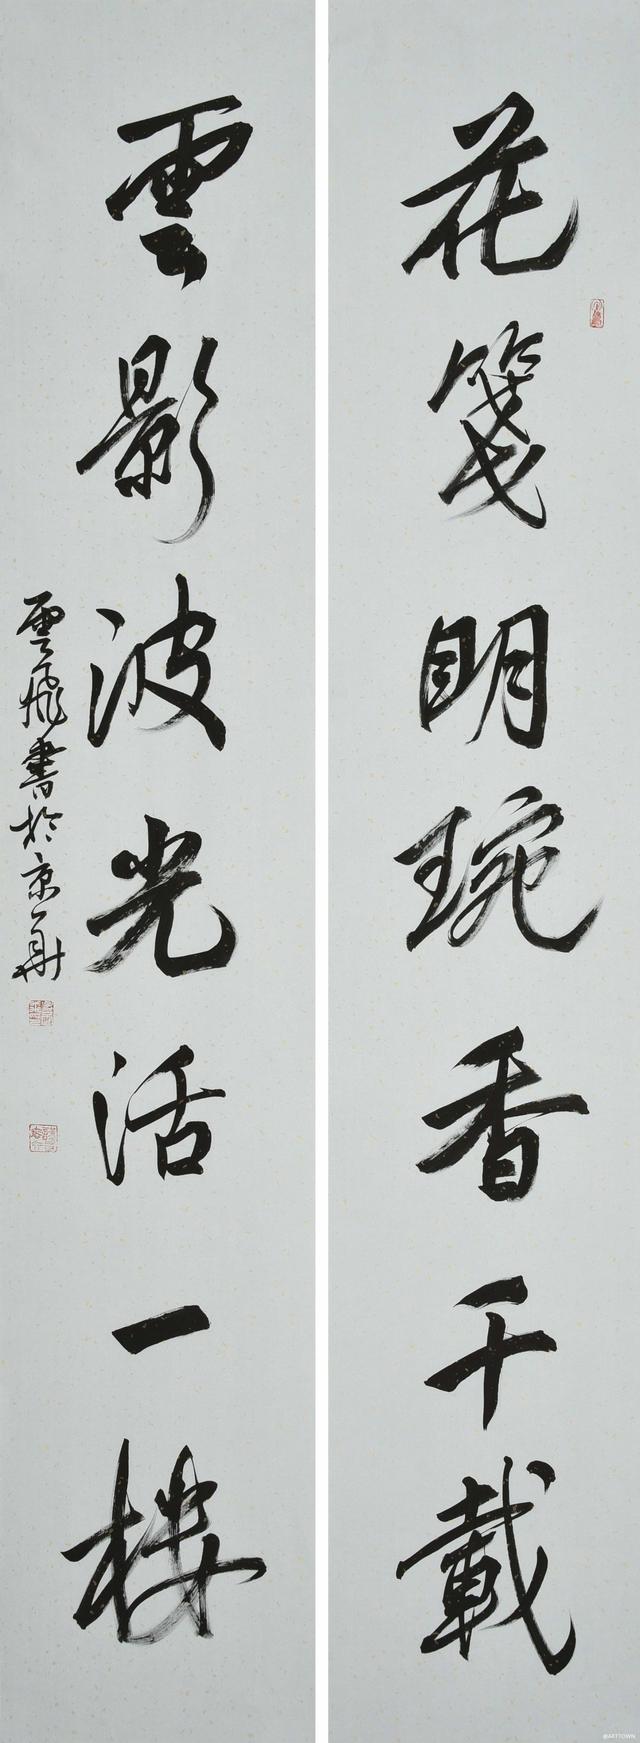 花箋明琬香千載
雲影波光活一樓
雲飛書於京華
@ARTTOWN